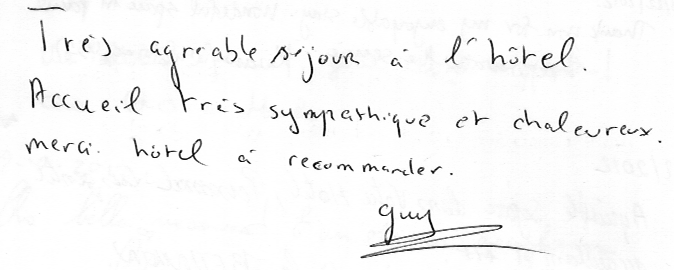 Très agréable séjour à l'hôtel.
Accueil très sympathique et chaleureux.
merci. hôtel à recommander.
guy